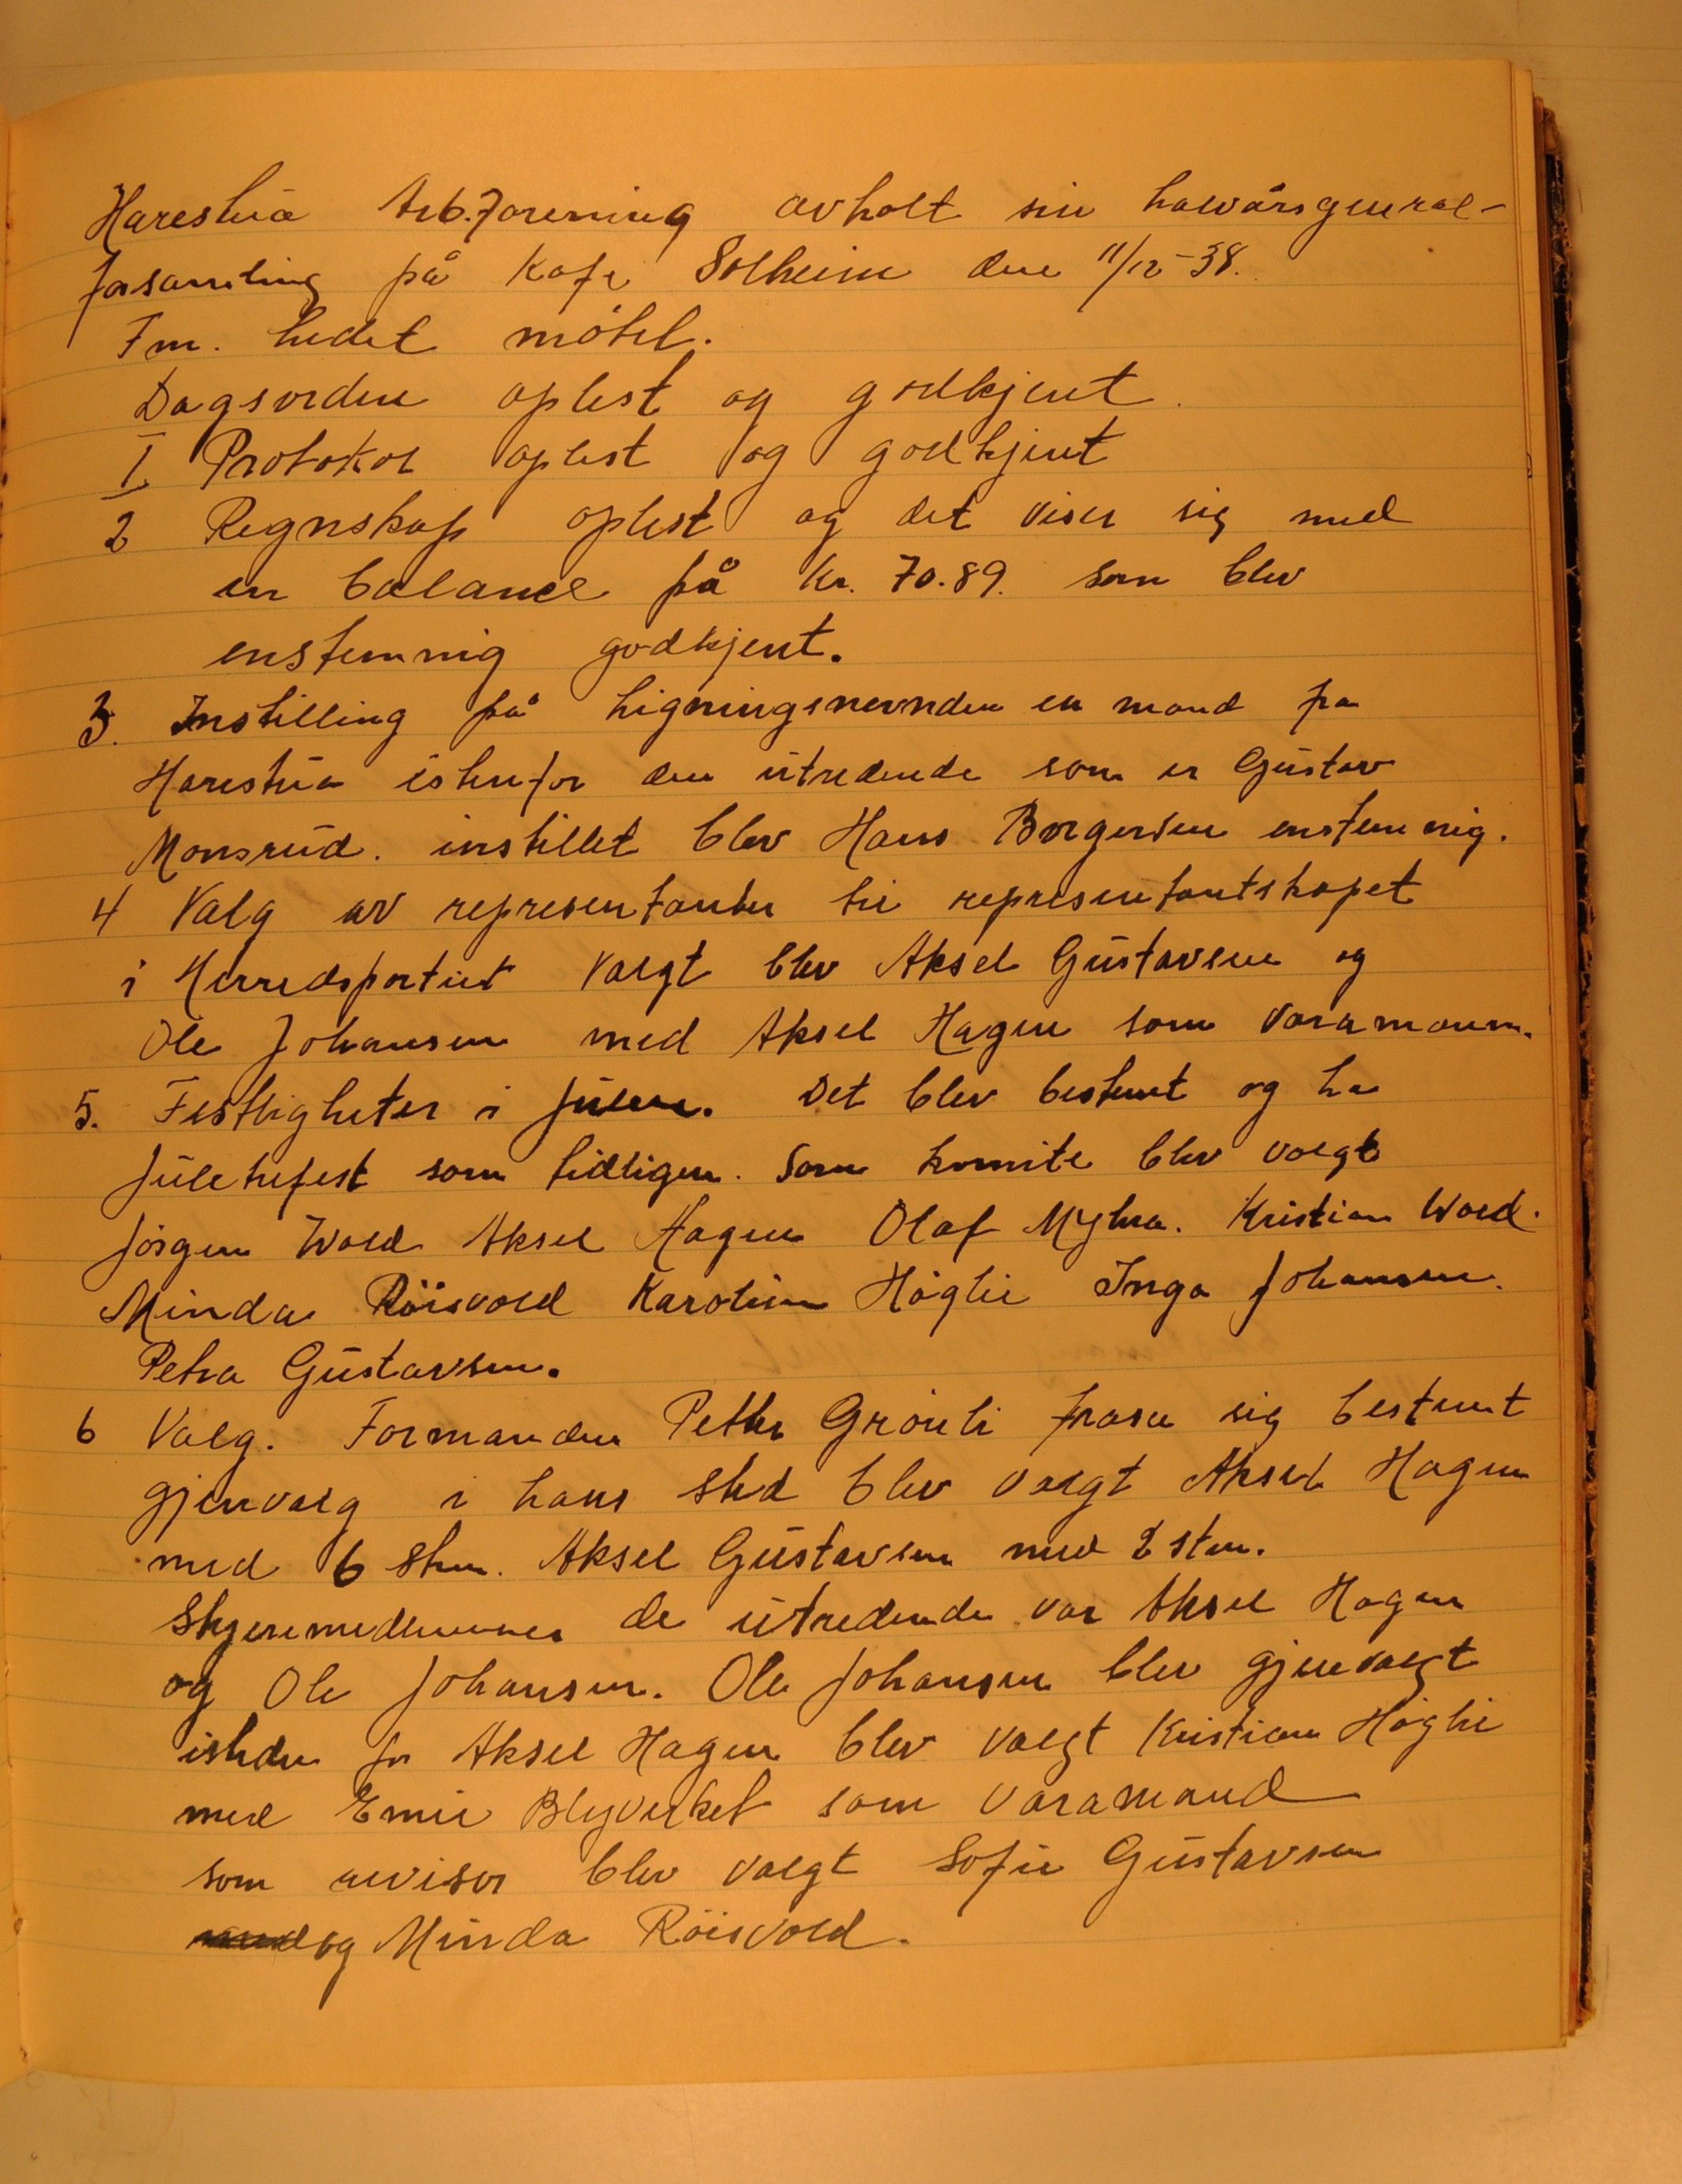 Harestua Arb.forening avholt sin halvårsgeneral-
forsamling på Kafe Solheim den 11/12-38.
Fm. ledet møtet.
Dagsorden oplest og godkjent.
1. Protokol oplest og godkjent
2 Regnskap oplest og det viser sig med
en balance på kr. 70.89. som blev
enstemmig godkjent.
3. Instilling på Ligningsnevnden en mand fra
Harestua istenfor den utredende som er Gustav
Monsrud. instillet blev Hans Borgersen enstemmig.
4 Valg av representanter til representantskapet
i Herredspartiet Valgt blev Aksel Gustavsen og
Ole Johansen med Aksel Hagen som varamann.
5. Festligheter i Julen. Det blev bestemt og ha
Juletrefest som tidligere. Som komite blev valgt
Jörgen Wold Aksel Hagen Olaf Myhra. Kristian Wold.
Minda Röisvold Karoline Höglie Inga Johansen.
Petra Gustavsen.
6 Valg. Formanden Petter Grönli frasa sig bestemt
gjenvalg i hans sted blev valgt Aksel Hagen
med 6 stem. Aksel Gustavsen med 2 stem.
Styremedlemmer de utredende var Aksel Hagen
og Ole Johansen. Ole Johansen blev gjenvalgt
isteden for Aksel Hagen blev valgt Kristian Höglie
med Emil Blyverket som varamand
som revisor blev valgt Sofie Gustavsen
og Minda Röisvold.